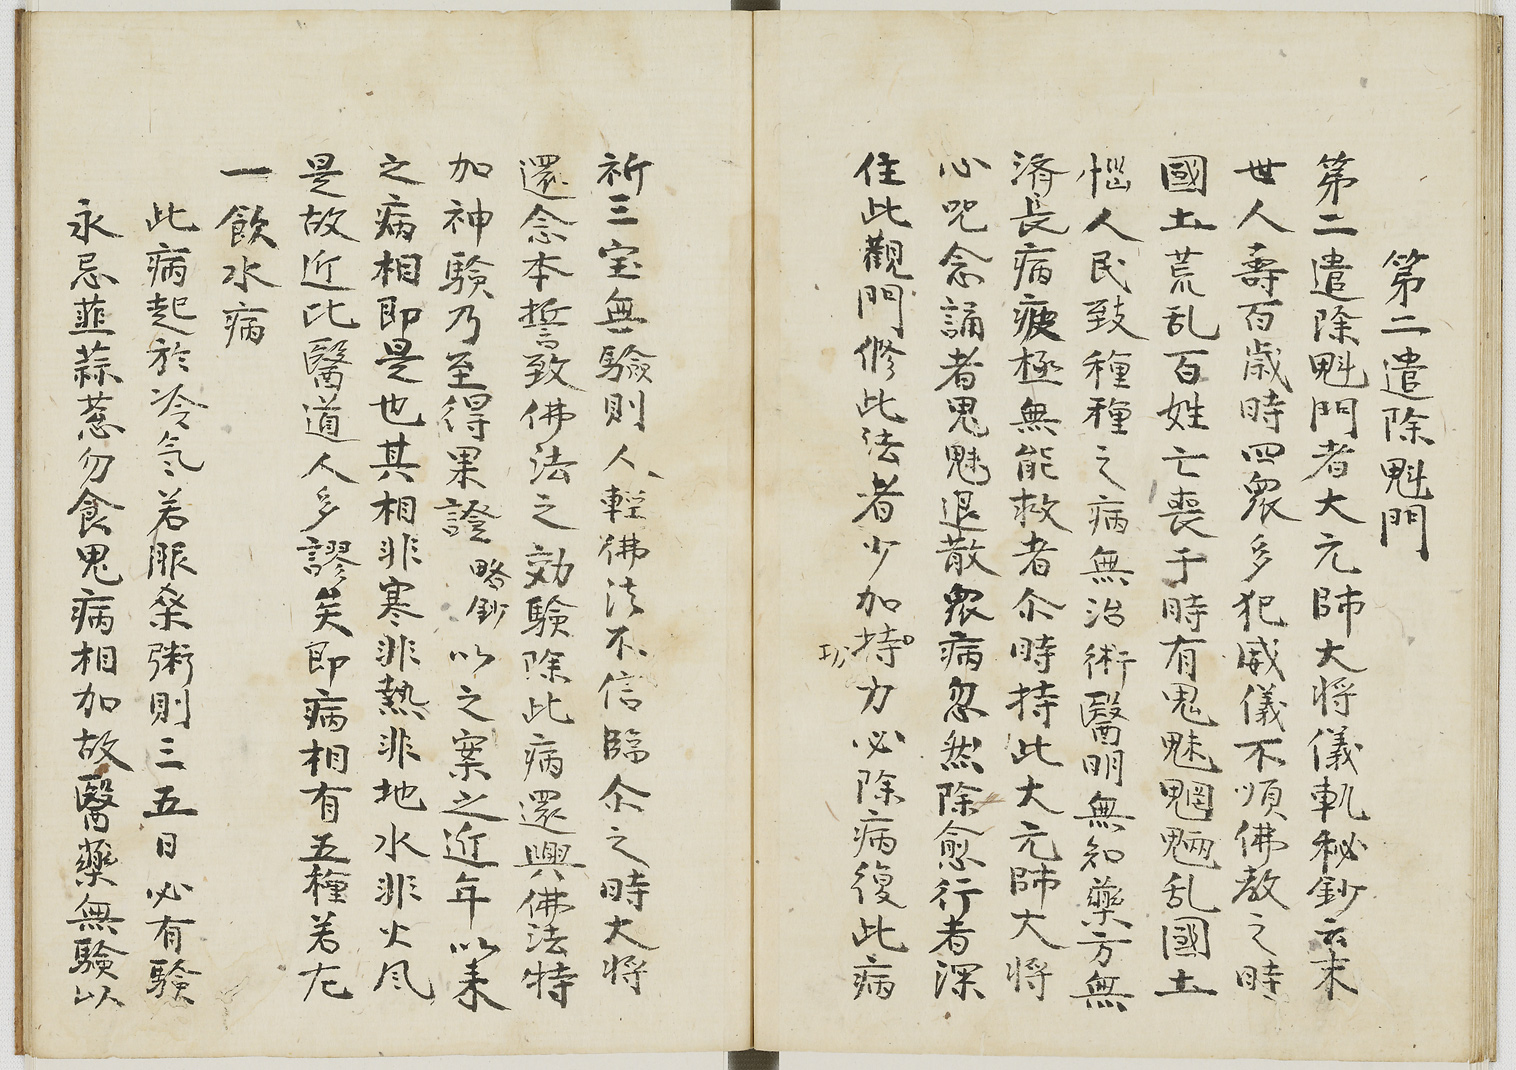 第二遣除魁門
第二遣除魁門者大元師大将儀軌秘鈔云末
世人壽百歳時四衆多犯威儀不順佛教之時
國土荒乱百姓亡喪于時有鬼魅魍魎乱國土
惱人民致種種之病無治術醫明無知藥方無
済長病疲極無能救者尒時持此大元師大将
心呪念誦者鬼魅退散衆病忽然除愈行者深
住此觀門修此法者少加持力必除病復此病
功
祈三宝無驗則人輕佛法不信臨尒之時大将
還念本誓致佛法之効験除此病還興佛法特
加神験乃至得果證略鈔以之案之近年以来
之病相即是也其相非寒非熱非地水非火風
是故近比醫道人多謬矣即病相有五種若左
一飲水病
此病起於冷氣若服桒粥則三五日必有験
永忌韮蒜葱勿食鬼病相加故醫藥無験以